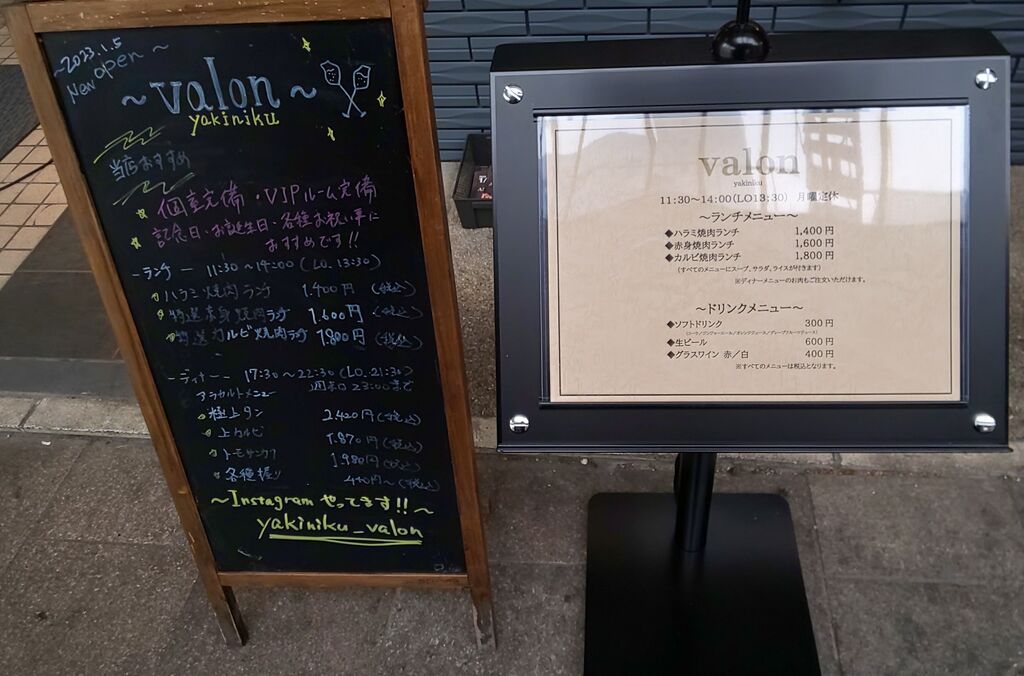 ~2023.1.5~
New open
~valon~
yakiniku
当店おすすめ
個室完備・VIPルーム完備
記念日・お誕生日・各種お祝い事に
おすすめです!!
-ランチ- 11:30~14:00(LO.13:30)
ハラミ焼肉ランチ 1.400円(税込)
特選赤身焼肉ランチ 1.600円(税込)
特選カルビ焼肉ランチ 1.800円(税込)
-ディナー- 17:30~22:30(LO.21:30)
週末は23:00まで
アラカルトメニュー
極上タン 2.420円(税込)
上カルビ 1.870円(税込)
トモサンカク 1.980円(税込)
各種握り 440円~(税込)
~Instagramやってます!!~
yakiniku_valon
valon
yakiniku
11:30~14:00(LO13:30) 月曜定休
~ランチメニュー~
◆ハラミ焼肉ランチ 1,400円
◆赤身焼肉ランチ 1,600円
◆カルビ焼肉ランチ 1,800円
(すべてのメニューにスープ、サラダ、ライスが付きます)
※ディナーメニューのお肉もご注文いただけます。
~ドリンクメニュー~
◆ソフトドリンク 300円
◆生ビール 600円
◆グラスワイン 赤/白 400円
※すべてのメニューは税込となります。